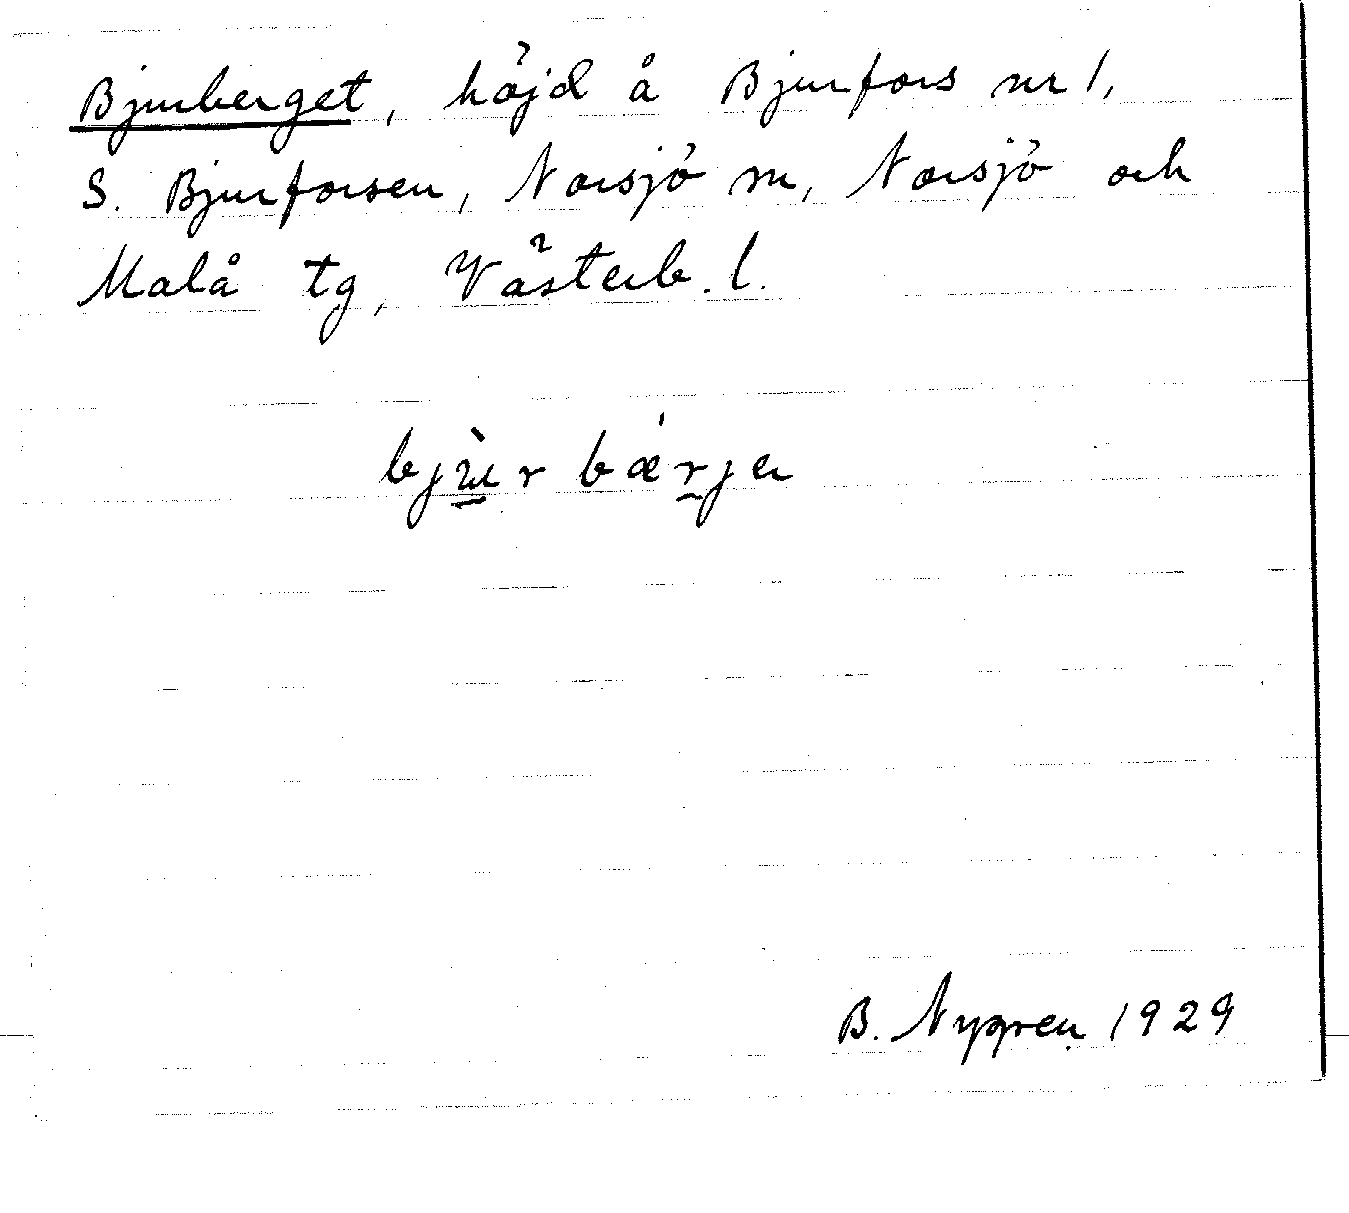 Bjurberget, höjd å Bjurfors nr 1,
S. Bjurforsen, Norsjö sn, Norsjö och
Malå tg, Västerb. l.
bjùr bǽrje
B. Nygren 1929